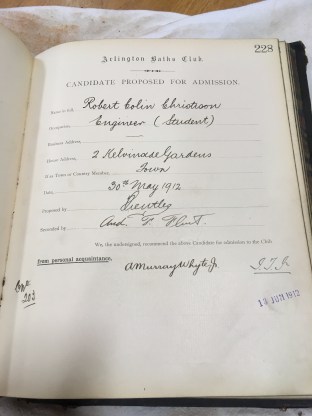 228
Arlington Baths Club
CANDIDATE PROPOSED FOR ADMISSION.
Name in full, Robert Colin Christison
Occupation, Engineer (Student)
Business Address, —
House Address, 2 Kelvinside Gardens
If as Town or Country Member, Town
Date, 30th May 1912
Proposed by
Seconded by And. F. Flint.
We, the undersigned, recommend the above Candidate for admission to the Club
from personal acquaintance,
A Murray Whyte Jr.
203
12 JUN 1912